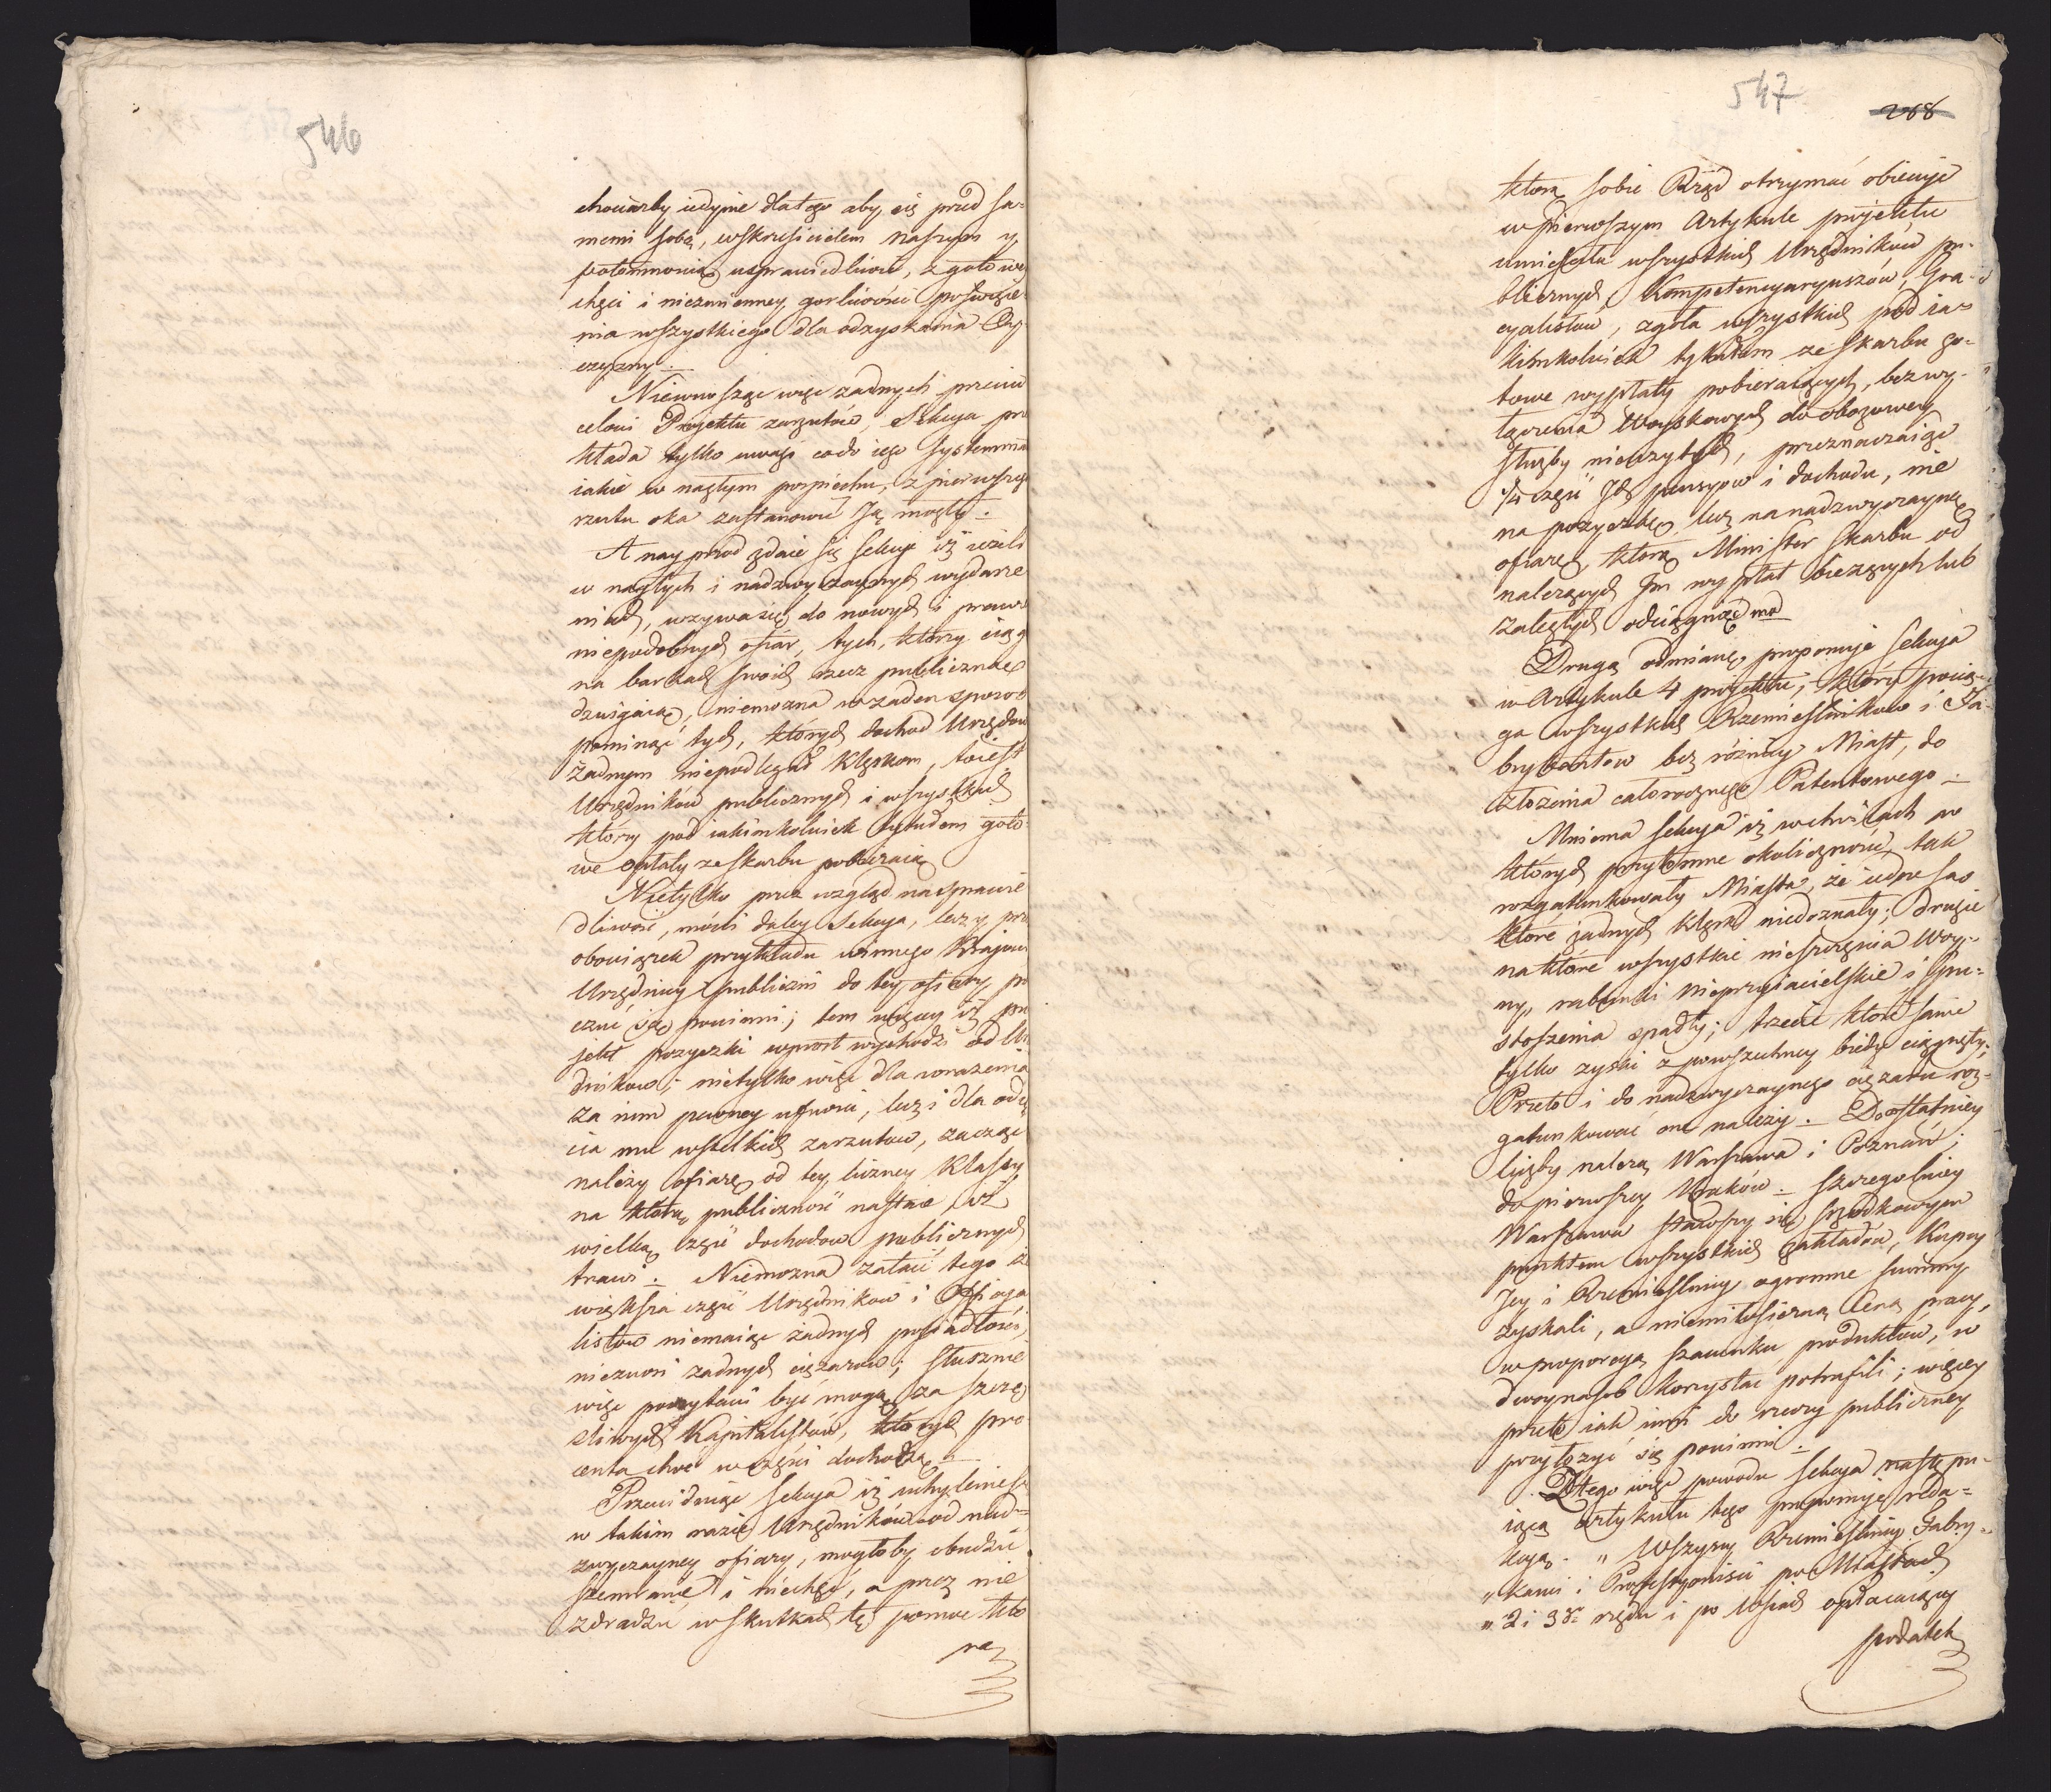 546
chociażby iedynie dlatego aby się przed sa-
memi sobą, wskrzesicielem naszym y
potomnością usprawiedliwić, z gotowey
chęci i niezmienney gorliwości poświęce-
nia wszystkiego dla odzyskania Oy-
czyzny.
Niewnosząc więc żadnych przeciw
celowi Projektu zarzutów, Sekcya prze
kłada tylko uwagi co do iego systemma
iakie w nagłym pospiechu, z pierwszego
rzutu oka zastanowić Ją mogły.
A nayprzod zdaie się Sekcyi iż ieżeli
w nagłych i nadzwyczaynych wydarze
niach, wzywa się do nowych i prawie
niepodobnych ofiar, tych, którzy ciągle
na barkach swoich rzecz publiczną
dzwigaią, niemożna w żaden sposob
pominąć tych, których dochod Urzędowy
żadnym niepodlegał klęskom, to iest
Urzędników publicznych i wszystkich
którzy pod iakimkolwiek tytułem goto-
we opłaty ze skarbu pobieraią
Nietylko przez wzgląd na sprawie
dliwość, mówi daley Sekcya, lecz y przez
obowiązek przykładu winnego Kraiowi
Urzędnicy publiczni do tey ofiary po
czuć się powinni; tem więcey iż pro
jekt pożyczki wprost wychodzi od Urzę
dników; nietylko więc dla wrażenia
za nim pewney ufności, lecz i dla odię
cia mu wszelkich zarzutów, zacząć
należy ofiarę od tey liczney Klassy
na którą publiczność nastaie, iż
wielką część dochodow publicznych
trawi. Niemożna zataić tego że
większa część Urzędnikow i Offycya
listow niemaiąc żadnych posiadłości,
nieznosi żadnych ciężarów; słusznie
więc poczytani być mogą za szczę
śliwych Kapitalistów, których pro
centa choć w części dochodzą.
Przewiduiąc Sekcya iż uchylenie się
w takim razie Urzędników od nad-
zwyczayney ofiary, mogłoby obudzić
szemranie i niechęć, a przez nie
zdradzić w skutkach tę pomoc któ
rą
547
268
którą sobie Rząd otrzymać obiecuje
w pierwszym Artykule projektu
umieściła wszystkich Urzędników pu-
blicznych, Kompetencyaryuszów, Gra-
cyalistow, zgoła wszystkich pod ia-
kimkolwiek tytułem ze skarbu go-
towe wypłaty pobieraiących, bez wy-
łączenia Woyskowych do obozowey
służby nieużytych, przeznaczaiąc
1/4 część Ich pensyow i dochodu, nie
na pożyczkę, lecz na nadzwyczayną
ofiarę, którą Minister Skarbu od
należących Im wypłat bieżących lub
zaległych odciągnąć ma
Drugą odmianę proponuje Sekcya
w Artykule 4 projektu, który pocią-
ga wszystkich Rzemieślnikow i Fa-
brykantow bez różnicy Miast, do
złożenia całorocznego Patentowego.
Mniema Sekcya iż w chwilach w
których przytomne okoliczności, tak
rozgatunkowały Miasta, że iedne są
które żadnych klęsk niedoznały; drugie
na które wszystkie nieszczęścia Woy-
ny, rabunki nieprzyiacielskie i spu-
stoszenia spadły; trzecie które same
tylko zyski z powszechney biedy ciągnęły;
Przeto i do nadzwyczaynego ciężaru roz-
gatunkować one należy. Do ostatniey
liczby należą Warszawa i Poznań;
do pierwszey Kraków. Szczególniey
Warszawa stawszy się srzodkowym
punktem wszystkich zakładow, Kupcy
Jey i Rzemieślnicy ogromne summy
zyskali, a niemiłosierną ceną pracy,
w proporcyą szacunku produktow, w
dwoynasob korzystać potrafili; więcey
przeto iak inni do rzeczy publiczney
przyłożyć się powinni.
Z tego więc powodu Sekcya nastęпu-
iącą artykułu tego proponuje reda-
kcyą. „Wszyscy Rzemieślnicy Fabry-
„kanci i Professyonisci po Miastach
„2 i 3go rzędu i po Wsiach opłacaiący
podatek